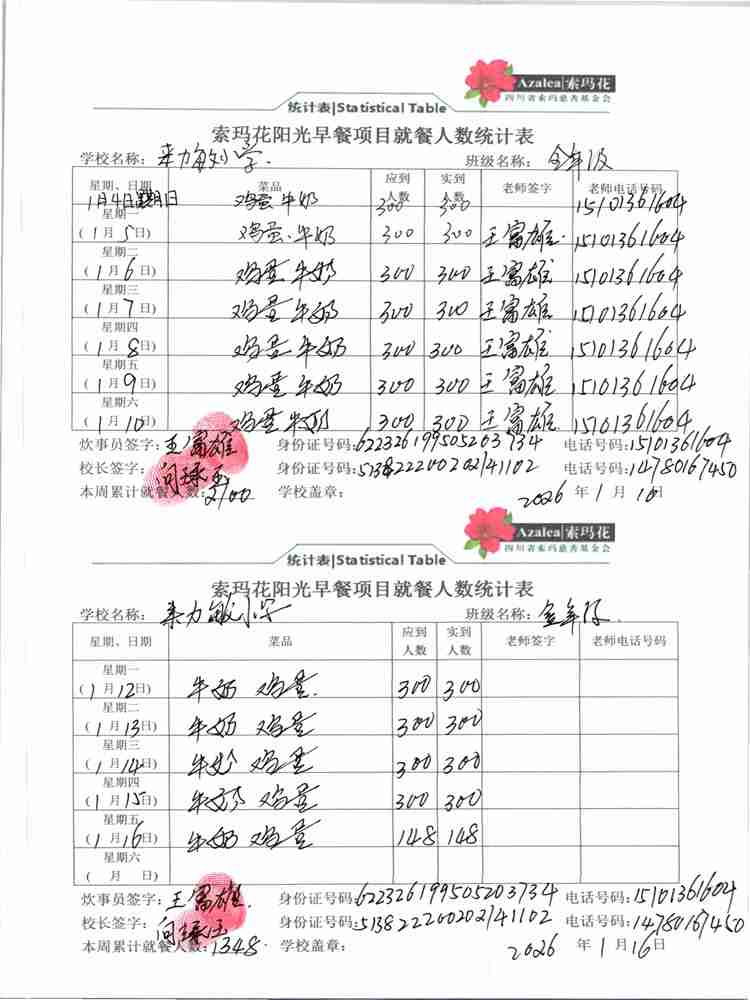 Azalea|索玛花
四川省索玛慈善基金会
统计表|Statistical Table
索玛花阳光早餐项目就餐人数统计表
学校名称：来力敏小学 班级名称：全年级
星期、日期 菜品 应到人数 实到人数 老师签字 老师电话号码
1月4日星期日 鸡蛋 牛奶 300 300 15101361604
星期一
(1月5日) 鸡蛋、牛奶 300 300 王富雄 15101361604
星期二
(1月6日) 鸡蛋 牛奶 300 300 王富雄 15101361604
星期三
(1月7日) 鸡蛋 牛奶 300 300 王富雄 15101361604
星期四
(1月8日) 鸡蛋 牛奶 300 300 王富雄 15101361604
星期五
(1月9日) 鸡蛋 牛奶 300 300 王富雄 15101361604
星期六
(1月10日) 鸡蛋 牛奶 300 300 王富雄 15101361604
炊事员签字：王富雄 身份证号码：622326199505203734 电话号码：15101361604
校长签字： 身份证号码：513822200202141102 电话号码：14780167450
本周累计就餐人数：2100 学校盖章： 2026年1月10日
Azalea|索玛花
四川省索玛慈善基金会
统计表|Statistical Table
索玛花阳光早餐项目就餐人数统计表
学校名称：来力敏小学 班级名称：全年级
星期、日期 菜品 应到人数 实到人数 老师签字 老师电话号码
星期一
(1月12日) 牛奶 鸡蛋. 300 300
星期二
(1月13日) 牛奶 鸡蛋 300 300
星期三
(1月14日) 牛奶 鸡蛋 300 300
星期四
(1月15日) 牛奶 鸡蛋 300 300
星期五
(1月16日) 牛奶 鸡蛋 148 148
星期六
( 月 日)
炊事员签字：王富雄. 身份证号码：622326199505203734 电话号码：15101361604
校长签字： 身份证号码：513822200202141102 电话号码：14780167450
本周累计就餐人数：1348 学校盖章： 2026年1月16日